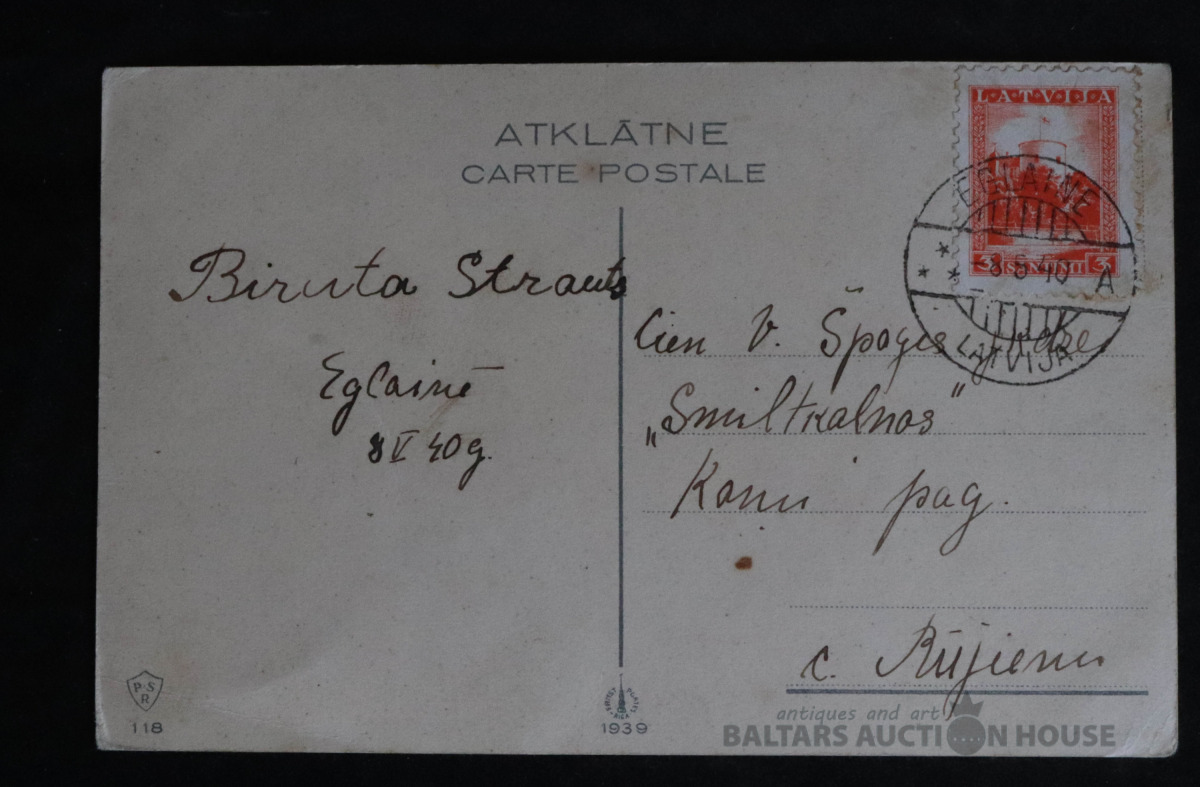 ATKLĀTNE
CARTE POSTALE
LATVIJA
3 SANTIMI 3
EGLAINE
8 5 40 A
LATVIJA
Biruta Strauts
Eglainē
8 V 40 g.
Cien V. Špoģis
„Smiltkalnos"
Koņu pag.
c. Rūjienu
PSR
118
1939
antiques and art
BALTARS AUCTION HOUSE